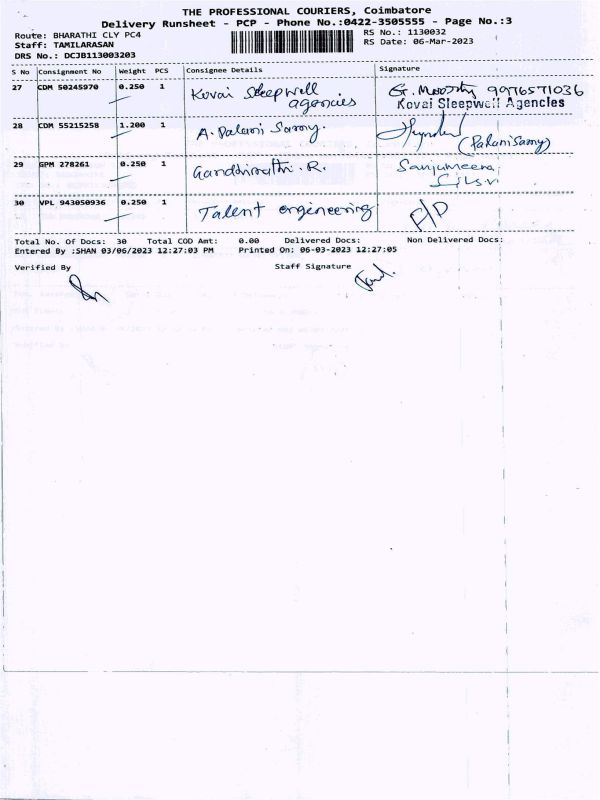 THE PROFESSIONAL COURIERS, Coimbatore
Delivery Runsheet - PCP - Phone No.:0422-3505555 - Page No.:3
Route: BHARATHI CLY PC4 RS No.: 1130032
Staff: TAMILARASAN RS Date: 06-Mar-2023
DRS No.: DCJB113003203
S No Consignment No Weight PCS Consignee Details Signature
27 CDM 50245970 0.250 1 Kovai Sleepwell agencies G. Moorthy 9976571036
Kovai Sleepwell Agencies
28 CDM 55215258 1.200 1 A. Palani Samy.
(PalaniSamy)
29 GPM 278261 0.250 1 Gandhimathi. R. Sanjumeera
30 VPL 943050936 0.250 1 Talent engineering P/D
Total No. Of Docs: 30 Total COD Amt: 0.00 Delivered Docs: Non Delivered Docs:
Entered By :SHAN 03/06/2023 12:27:03 PM Printed On: 06-03-2023 12:27:05
Verified By Staff Signature